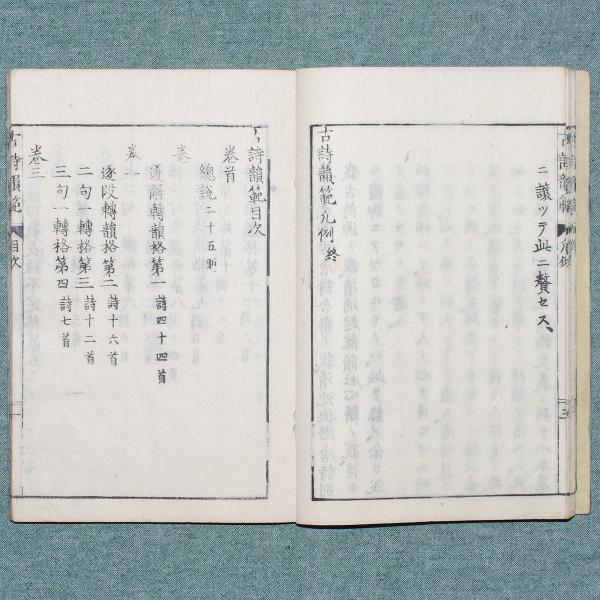 ニ讓ツテ此ニ贅セス、
古詩韻範凡例終
古詩韻範目次
卷首
總說二十五則
卷一
逐解轉韻格第一 詩四十四首
卷二
逐段轉韻格第二 詩十六首
二句一轉格第三 詩十二首
三句一轉格第四 詩七首
卷三
古詩韻範 目次 一